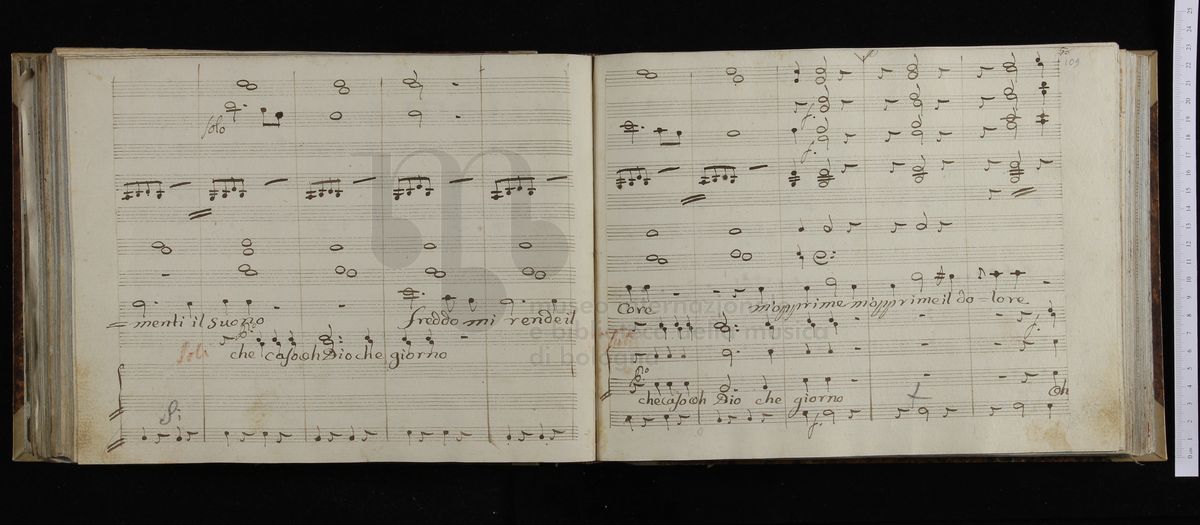 Solo
= menti il suono freddo mi rende il
Soli
che caso oh Dio che giorno
109
Core m'opprime m'opprime il do - lore
Soli
che caso oh Dio che giorno Oh
museo internazionale
e biblioteca della musica
di bologna